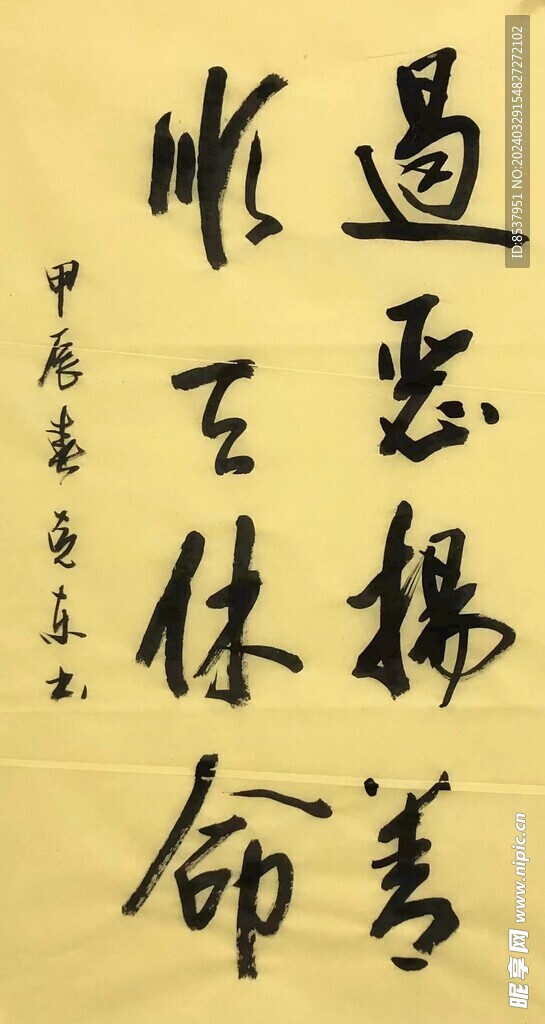 遏惡揚善
順天休命
甲辰春克东书
ID:8537951 NO:20240329154827272102
昵享网 www.nipic.cn